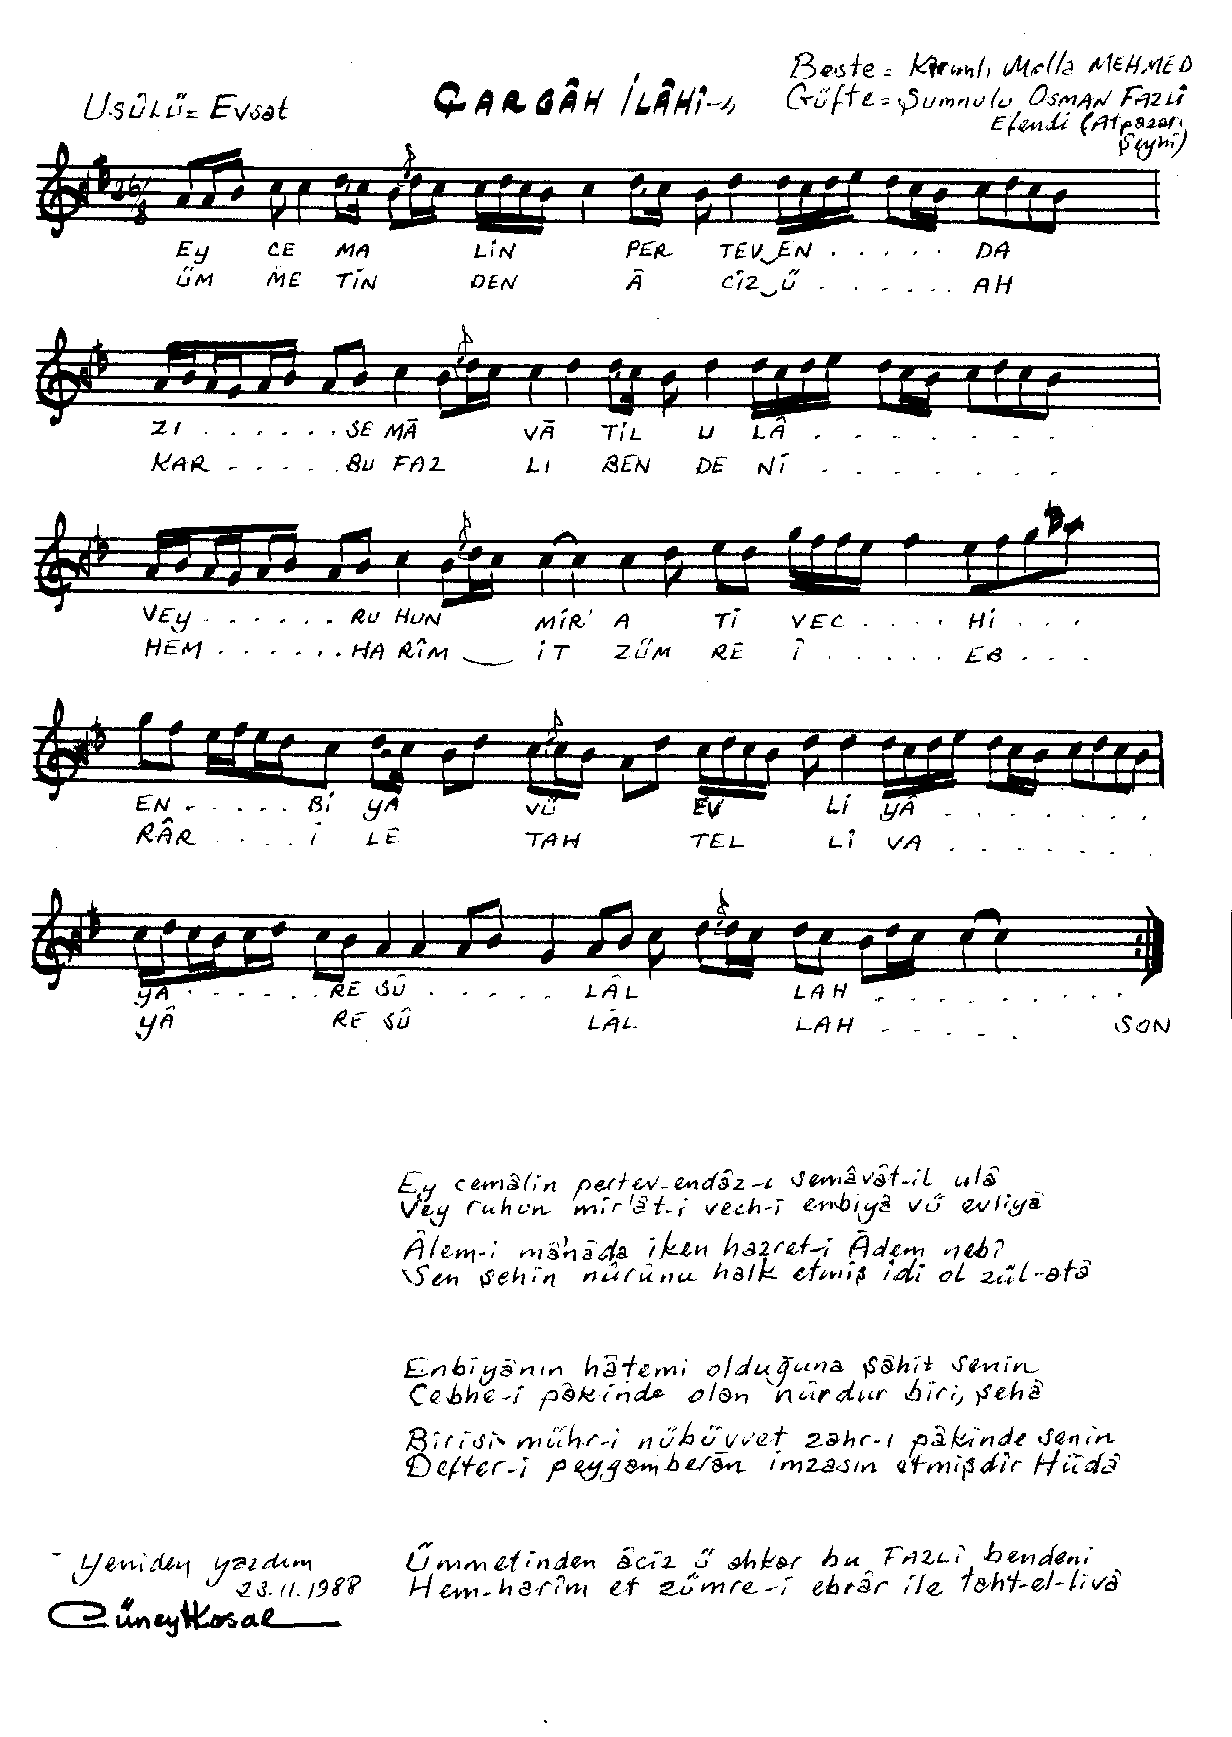 Beste = Kırımlı Molla MEHMED
Usûlü = Evsat
ÇARGÂH İLÂHİ
Güfte = Şumnulu OSMAN FAZLÎ
Efendi (Atpazarı
Şeyhi)
26/8
EY CE MA LİN PER TEV EN . . . . . DA
ÜM ME TİN DEN Â CİZ Ü . . . . . . AH
ZI . . . . . . SE MÂ VÂ TİL U LÂ . . . . . . .
KAR . . . . . BU FAZ LI BEN DE Nİ . . . . . . .
VEY . . . . . . RU HUN MİR' A Tİ VEC . . . . Hİ . . .
HEM . . . . . . HA RÎM İT ZÜM RE İ . . . . . EB . . .
EN . . . . . Bİ YÂ VÜ EV Lİ YÂ . . . . . . .
RÂR . . . . İ LE TAH TEL Lİ VA . . . . . . .
YÂ . . . . . . RE SÛ . . . . . LÂL LAH . . . . . . . .
YÂ RE SÛ LÂL LAH . . . . . SON
Ey cemâlin pertev-endâz-ı semâvât-il ulâ
Vey ruhun mir'ât-i vech-i embiyâ vü evliyâ
Âlem-i mânâda iken hazret-i Âdem nebî
Sen şehin nûrûnu halk etmiş idi ol zül-atâ
Enbiyânın hâtemi olduğuna şâhit senin
Cebhe-i pâkinde olan nûrdur biri, şehâ
Birisi mühr-i nübüvvet zahr-ı pâkinde senin
Defter-i peygamberân imzasın etmişdir Hüdâ
- Yeniden yazdım
Ümmetinden âciz ü ahkar bu FAZLÎ bendeni
23.11.1988
Hem-harîm et zümre-i ebrâr ile taht-el-livâ
Cüneyt Kosal